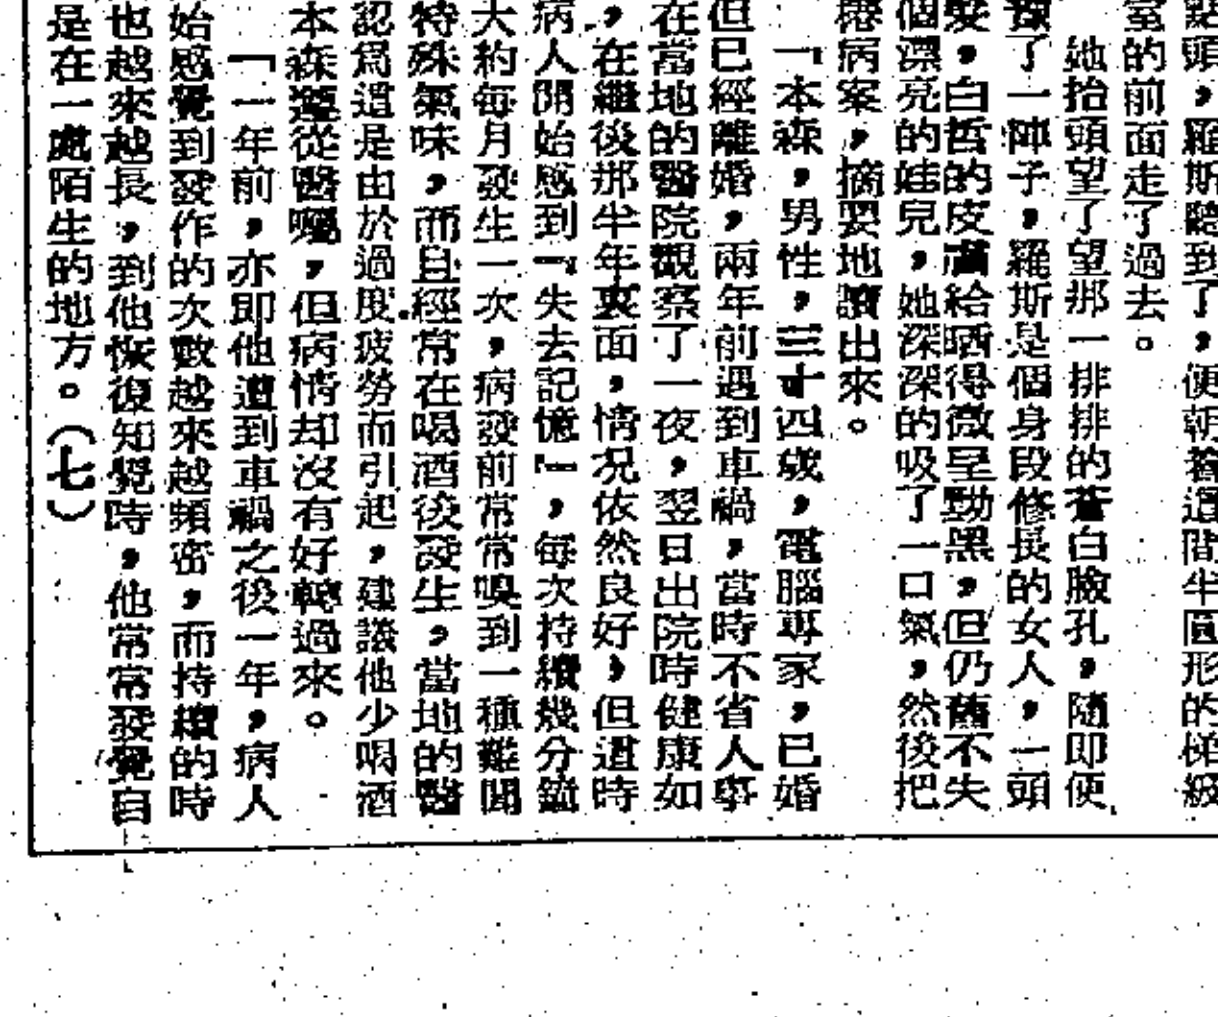 點頭，羅斯聽到了，便朝着這間半圓形的梯級
室的前面走了過去。
她抬頭望了望那一排排的蒼白臉孔，隨即便
了一陣子，羅斯是個身段修長的女人，一頭
髮，白晳的皮膚給晒得微呈黝黑，但仍舊不失
個漂亮的娃兒，她深深的吸了一口氣，然後把
病案，摘要地讀出來。
「本森，男性，三十四歲，電腦專家，已婚
但已經離婚，兩年前遇到車禍，當時不省人事
在當地的醫院觀察了一夜，翌日出院時健康如
，在繼後那半年裏面，情況依然良好，但這時
病人開始感到『失去記憶』，每次持續幾分鐘
大約每月發生一次，病發前常常嗅到一種難聞
特殊氣味，而且經常在喝酒後發生，當地的醫
認爲這是由於過度疲勞而引起，建議他少喝酒
本森遵從醫囑，但病情却沒有好轉過來。
「一年前，亦即他遭到車禍之後一年，病人
始感覺到發作的次數越來越頻密，而持續的時
也越來越長，到他恢復知覺時，他常常發覺自
是在一處陌生的地方。（七）